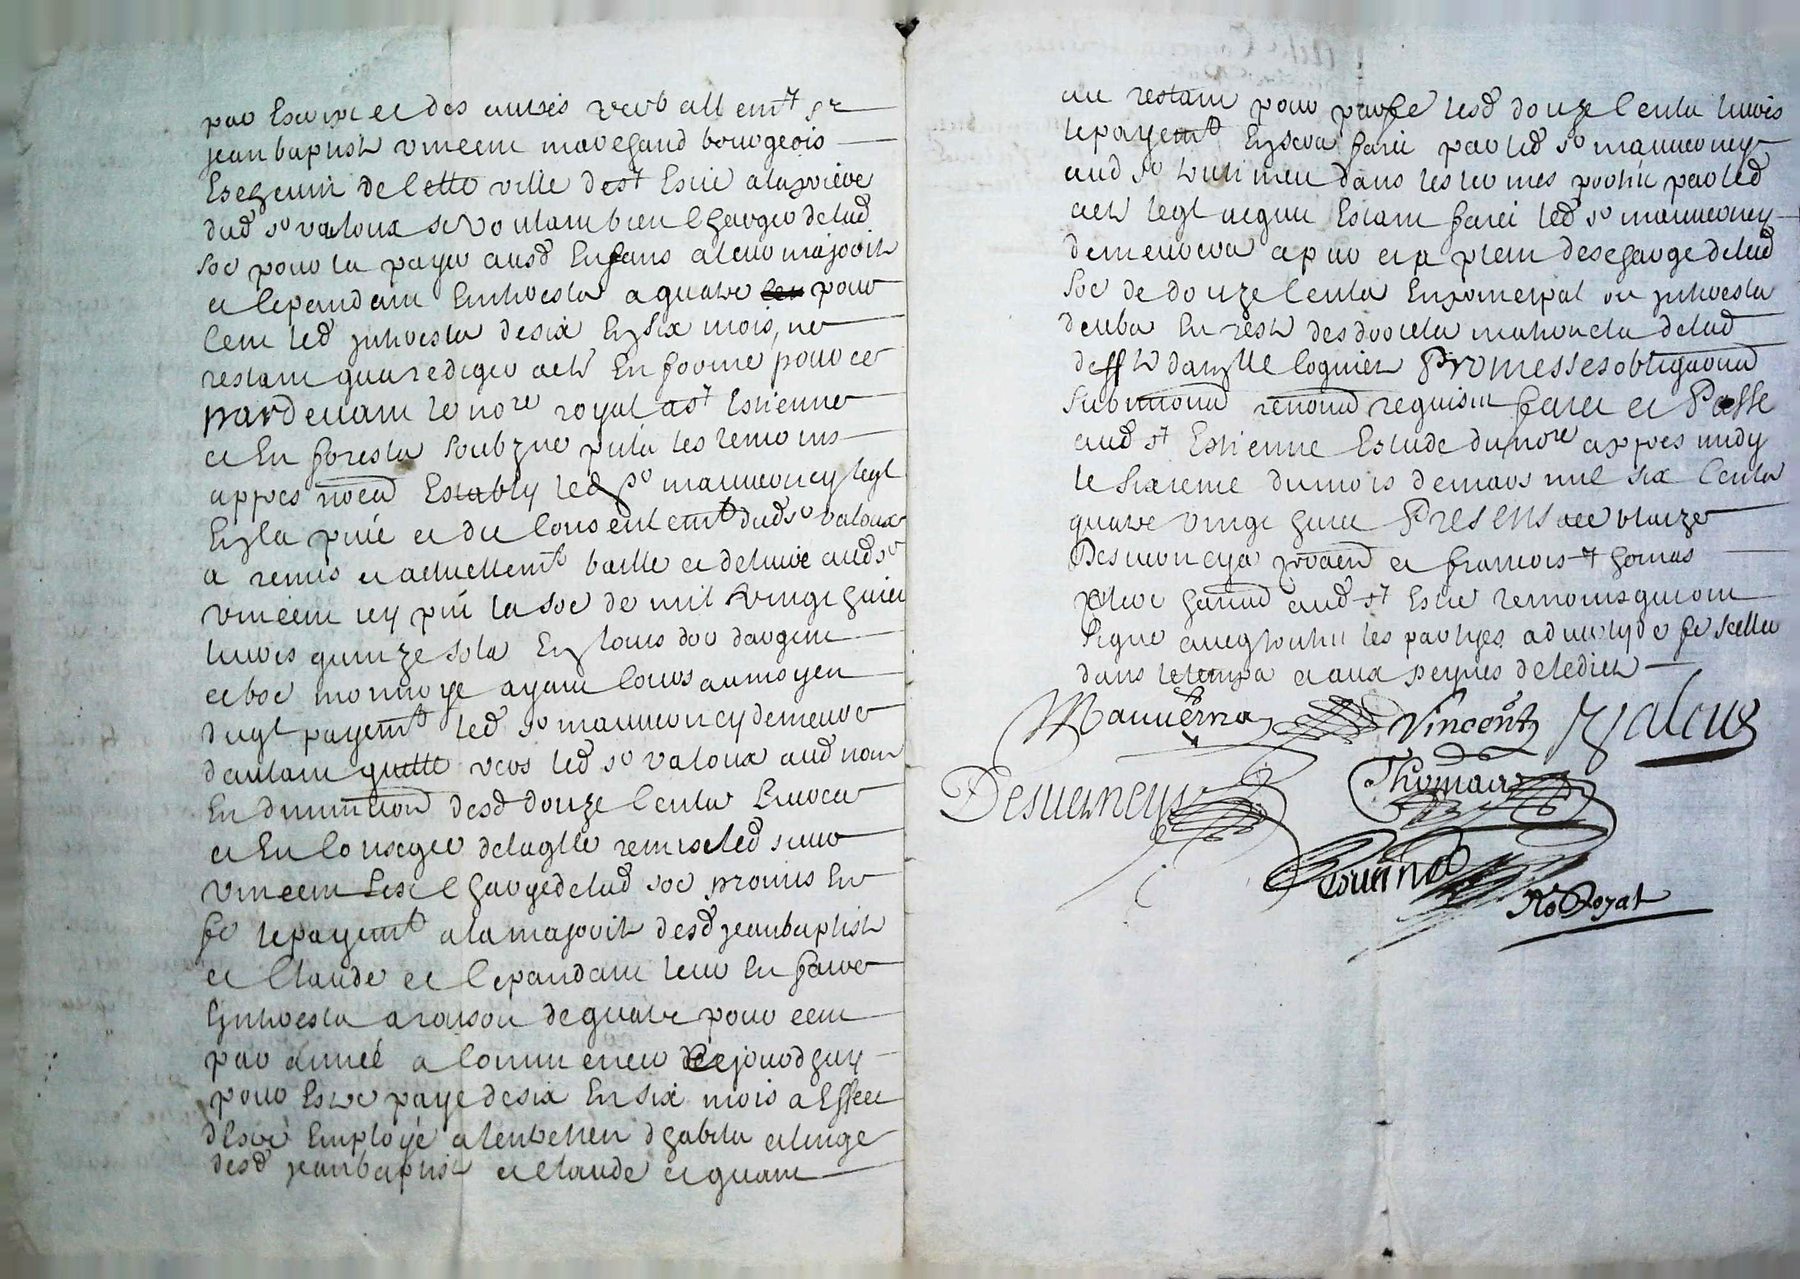 par Escript et des autres verballem^t s^r
jean baptiste vincent marchand bourgeois
Eschevin de cette ville de s^t Esne a la priere
dud s^r valoux se voulant bien charger de lad
soe pour la payer ausd Enfans a leur majorite
et cependant Linterestz a quatre pour
cent led jnterestz de six En six mois, ne
restant qua rediger acte En forme pour ce
pardevant le no^re royal a s^t Estienne
et En forestz soubzne pnts les temoins
appres nom̄es Estably led s^r mauverney leql
En la pnce et du consentem^t dud s^r valoux
a remis et actuellem^t baille et delivré aud s^r
vincent icy pnt la soe de mil vingt huict
livres quinze solz En louis dor dargent
et boe monnoye ayant cours au moyen
duql payem^t led s^r mauverney demeure
dautant quitte vers led s^r valoux aud nom
En diminūon desd douze centz livres
et En conseqce de laqlle remise led sieur
vincent sest chargé de lad soe promis En
fe le payem^t a la majorite desd jean baptiste
et Claude et cependant leur En faire
Jnterestz a raison de quatre pour cent
par année a commencer de cejourdhuy
pour Estre payé de six En six mois a Effect
destre Employé a lentretien dhabitz et linge
desd jean baptiste et claude et quant
au restant pour parfe lesd douze centz livres
le payem^t En sera faict par led s^r mauverney
aud s^r vincent dans les termes portés par led
acte leql acquit Estant faict led s^r mauverney
demeurera a pur et a plein deschargé de lad
soe de douze centz En principal ou jnterestz
deubz En reste des droictz maternelz de lad
deff^te dam^lle Promesses obligaōns
submiōns renōns requises faict et Passé
aud s^t Estienne Estude du no^re appres midy
le sixieme du mois de mars mil six centz
quatre vingt huict Presens me blaize
Desverneys praēn et francois thomas
clerc habitt aud s^t Esne temoins qui ont
signé avec toutes les partyes advertys de fe sceller
dans le temps et aux peynes de ledict
Mauverney Vincent Valoux
Desverneys Thomas
No^re Royal